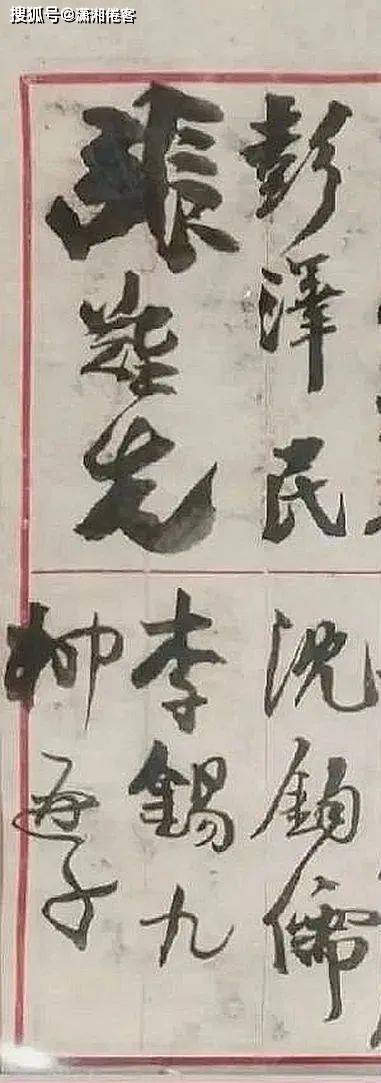 搜狐号@潇湘捲客
彭澤民
張難先
沈鈞儒
李錫九
柳亞子